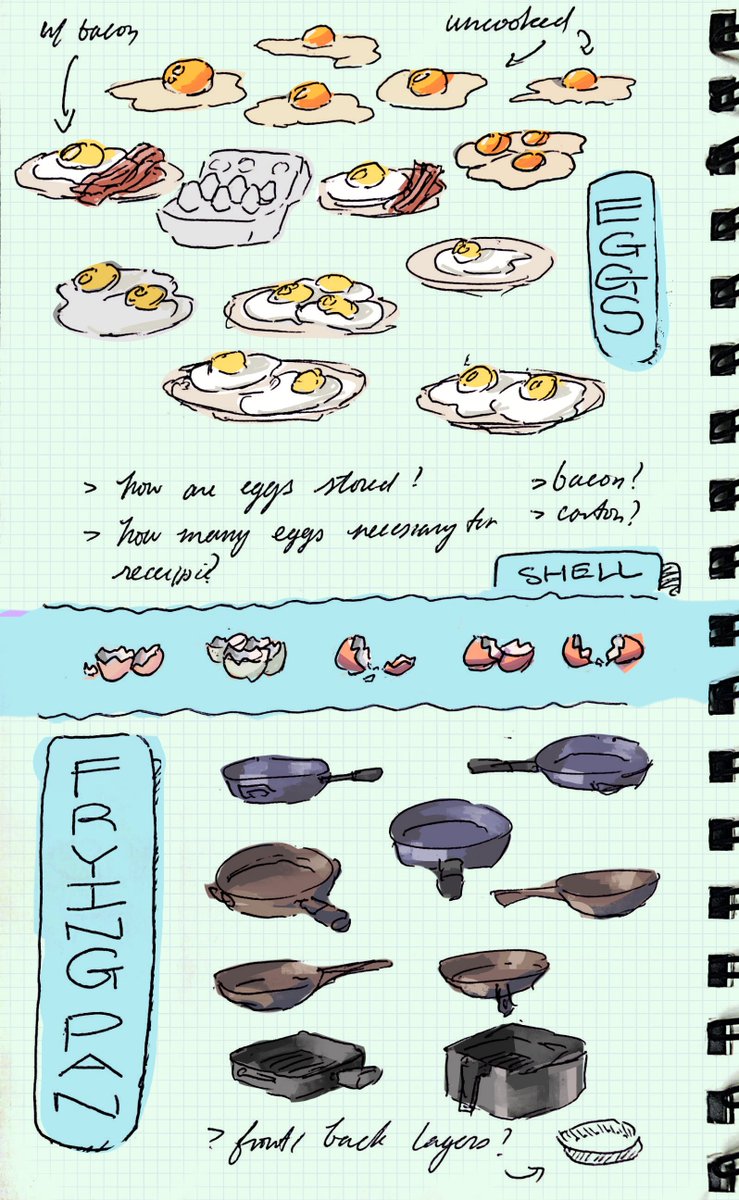 w/ bacon
uncooked
EGGS
> how are eggs stored?
> how many eggs necessary for
receipie?
> bacon?
> carton?
SHELL
FRYING PAN
? front/ back layers?